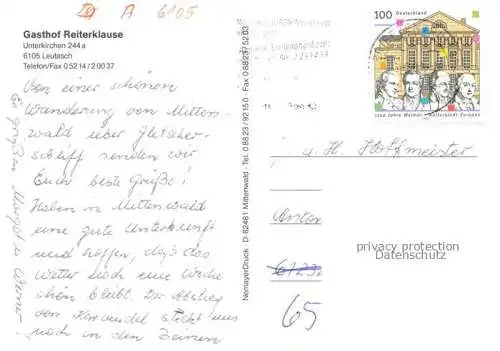 A 6105
Gasthof Reiterklause
Unterkirchen 244 a
6105 Leutasch
Telefon/Fax 0 52 14 / 2 00 37
Von einer schönen
Wanderung von Mitten-
wald über Gletscher-
schliff senden wir
Euch beste Grüße!
Haben in Mittenwald
eine gute Unterkunft
und hoffen, daß das
Wetter noch eine Woche
schön bleibt. Der Abstieg
vom Karwendel steckt uns
noch in den Beinen
Es grüßen Margot u. Werner
NemayerDruck · D-82481 Mittenwald · Tel. 0 88 23 / 92 15 0 · Fax 0 88 23 / 52 03
100 Deutschland
1100 Jahre Weimar - Kulturstadt Europas
u. H. Hoffmeister
65
privacy protection
Datenschutz